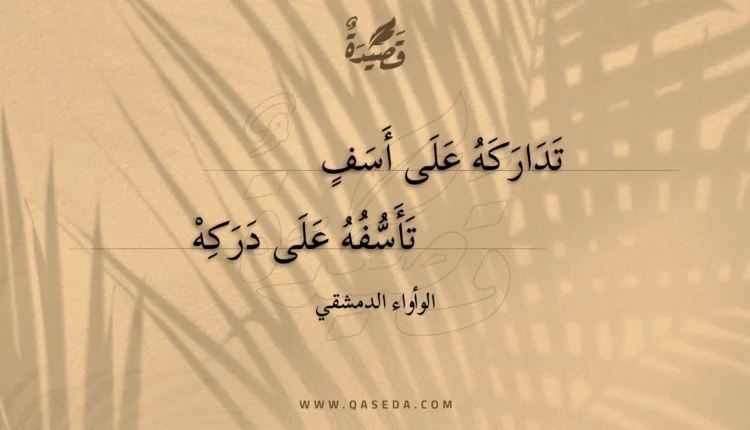 قَصِيدَةٌ
تَدَارَكَهُ عَلَى أَسَفٍ
تَأَسُّفُهُ عَلَى دَرَكِهْ
الوأواء الدمشقي
WWW.QASEDA.COM